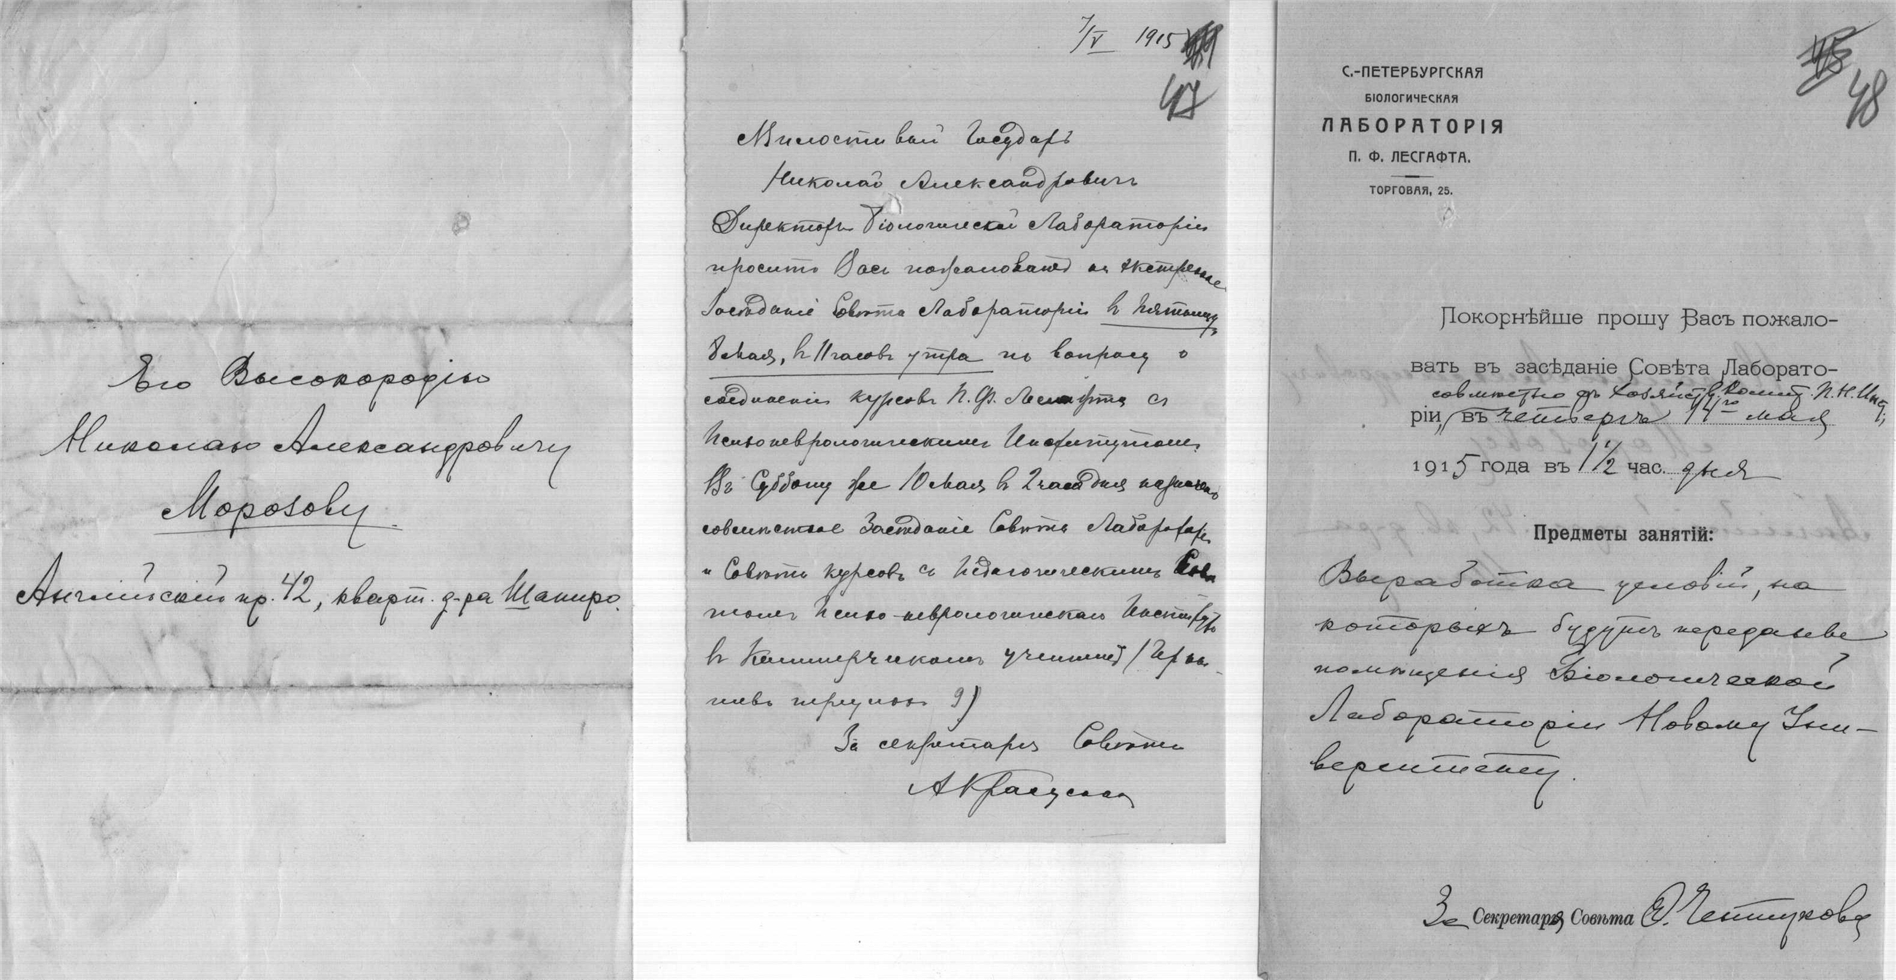 Его Высокородію
Николаю Александровичу
Морозову.
Англійскій пр. 42, кварт. д-ра Шапиро.
7/V 1915
47
Милостивый Государь
Николай Александровичъ
Директоръ Біологической Лабораторіи
проситъ Васъ пожаловать на экстренное
Засѣданіе Совѣта Лабораторіи въ пятницу
8 мая, въ 11 часовъ утра по вопросу о
соединеніи курсовъ П. Ф. Лесгафта съ
Психоневрологическимъ Институтомъ
Въ Субботу же 10 мая в 2 часа дня назначено
совмѣстное Засѣданіе Совѣта Лаборатор.
и Совѣта курсовъ съ Педагогическимъ Совѣ
томъ Психо-неврологическаго Института
въ Коммерческомъ училищѣ (Черны-
шевъ переулокъ 9)
За секретаря Совѣта
48
С.-ПЕТЕРБУРГСКАЯ
БІОЛОГИЧЕСКАЯ
ЛАБОРАТОРІЯ
П. Ф. ЛЕСГАФТА.
ТОРГОВАЯ, 25.
Покорнѣйше прошу Васъ пожало-
вать въ засѣданіе Совѣта Лаборато-
совмѣстно съ Хозяйств. Комит. П. Н. Инст.,
ріи, въ четвергъ 14го мая
1915 года въ 1 1/2 час. дня
Предметы занятій:
Выработка условій, на
которыхъ будутъ переданы
помѣщенія Біологической
Лабораторіи Новому Уни-
верситету.
За Секретаря Совѣта